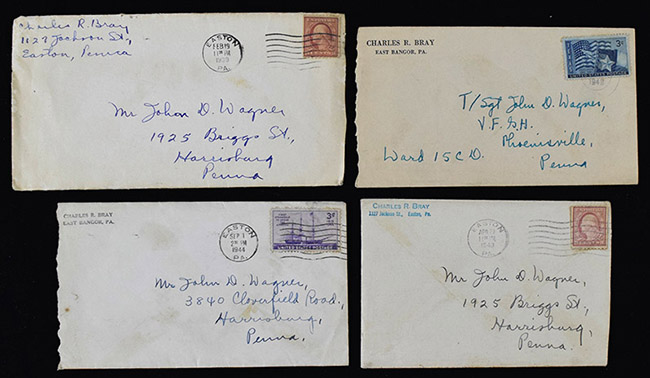 Charles R. Bray
Jackson St.,
Easton, Penna
EASTON
FEB 19
PA.
Mr John D. Wagner
1925 Briggs St.,
Harrisburg
Penna
CHARLES R. BRAY
EAST BANGOR, PA.
3¢
UNITED STATES POSTAGE
T/Sgt John D. Wagner,
V.F.G.H.
Phoenixville,
Ward 15 C D.
Penna
CHARLES R. BRAY
EAST BANGOR, PA.
EASTON
SEP
PM
1944
PA.
3¢
UNITED STATES POSTAGE
Mr John D. Wagner,
3840 Cloverfield Road,
Harrisburg,
Penna.
CHARLES R. BRAY
Jackson St., Easton, Pa.
EASTON
PA.
Mr John D. Wagner,
1925 Briggs St.,
Harrisburg,
Penna.